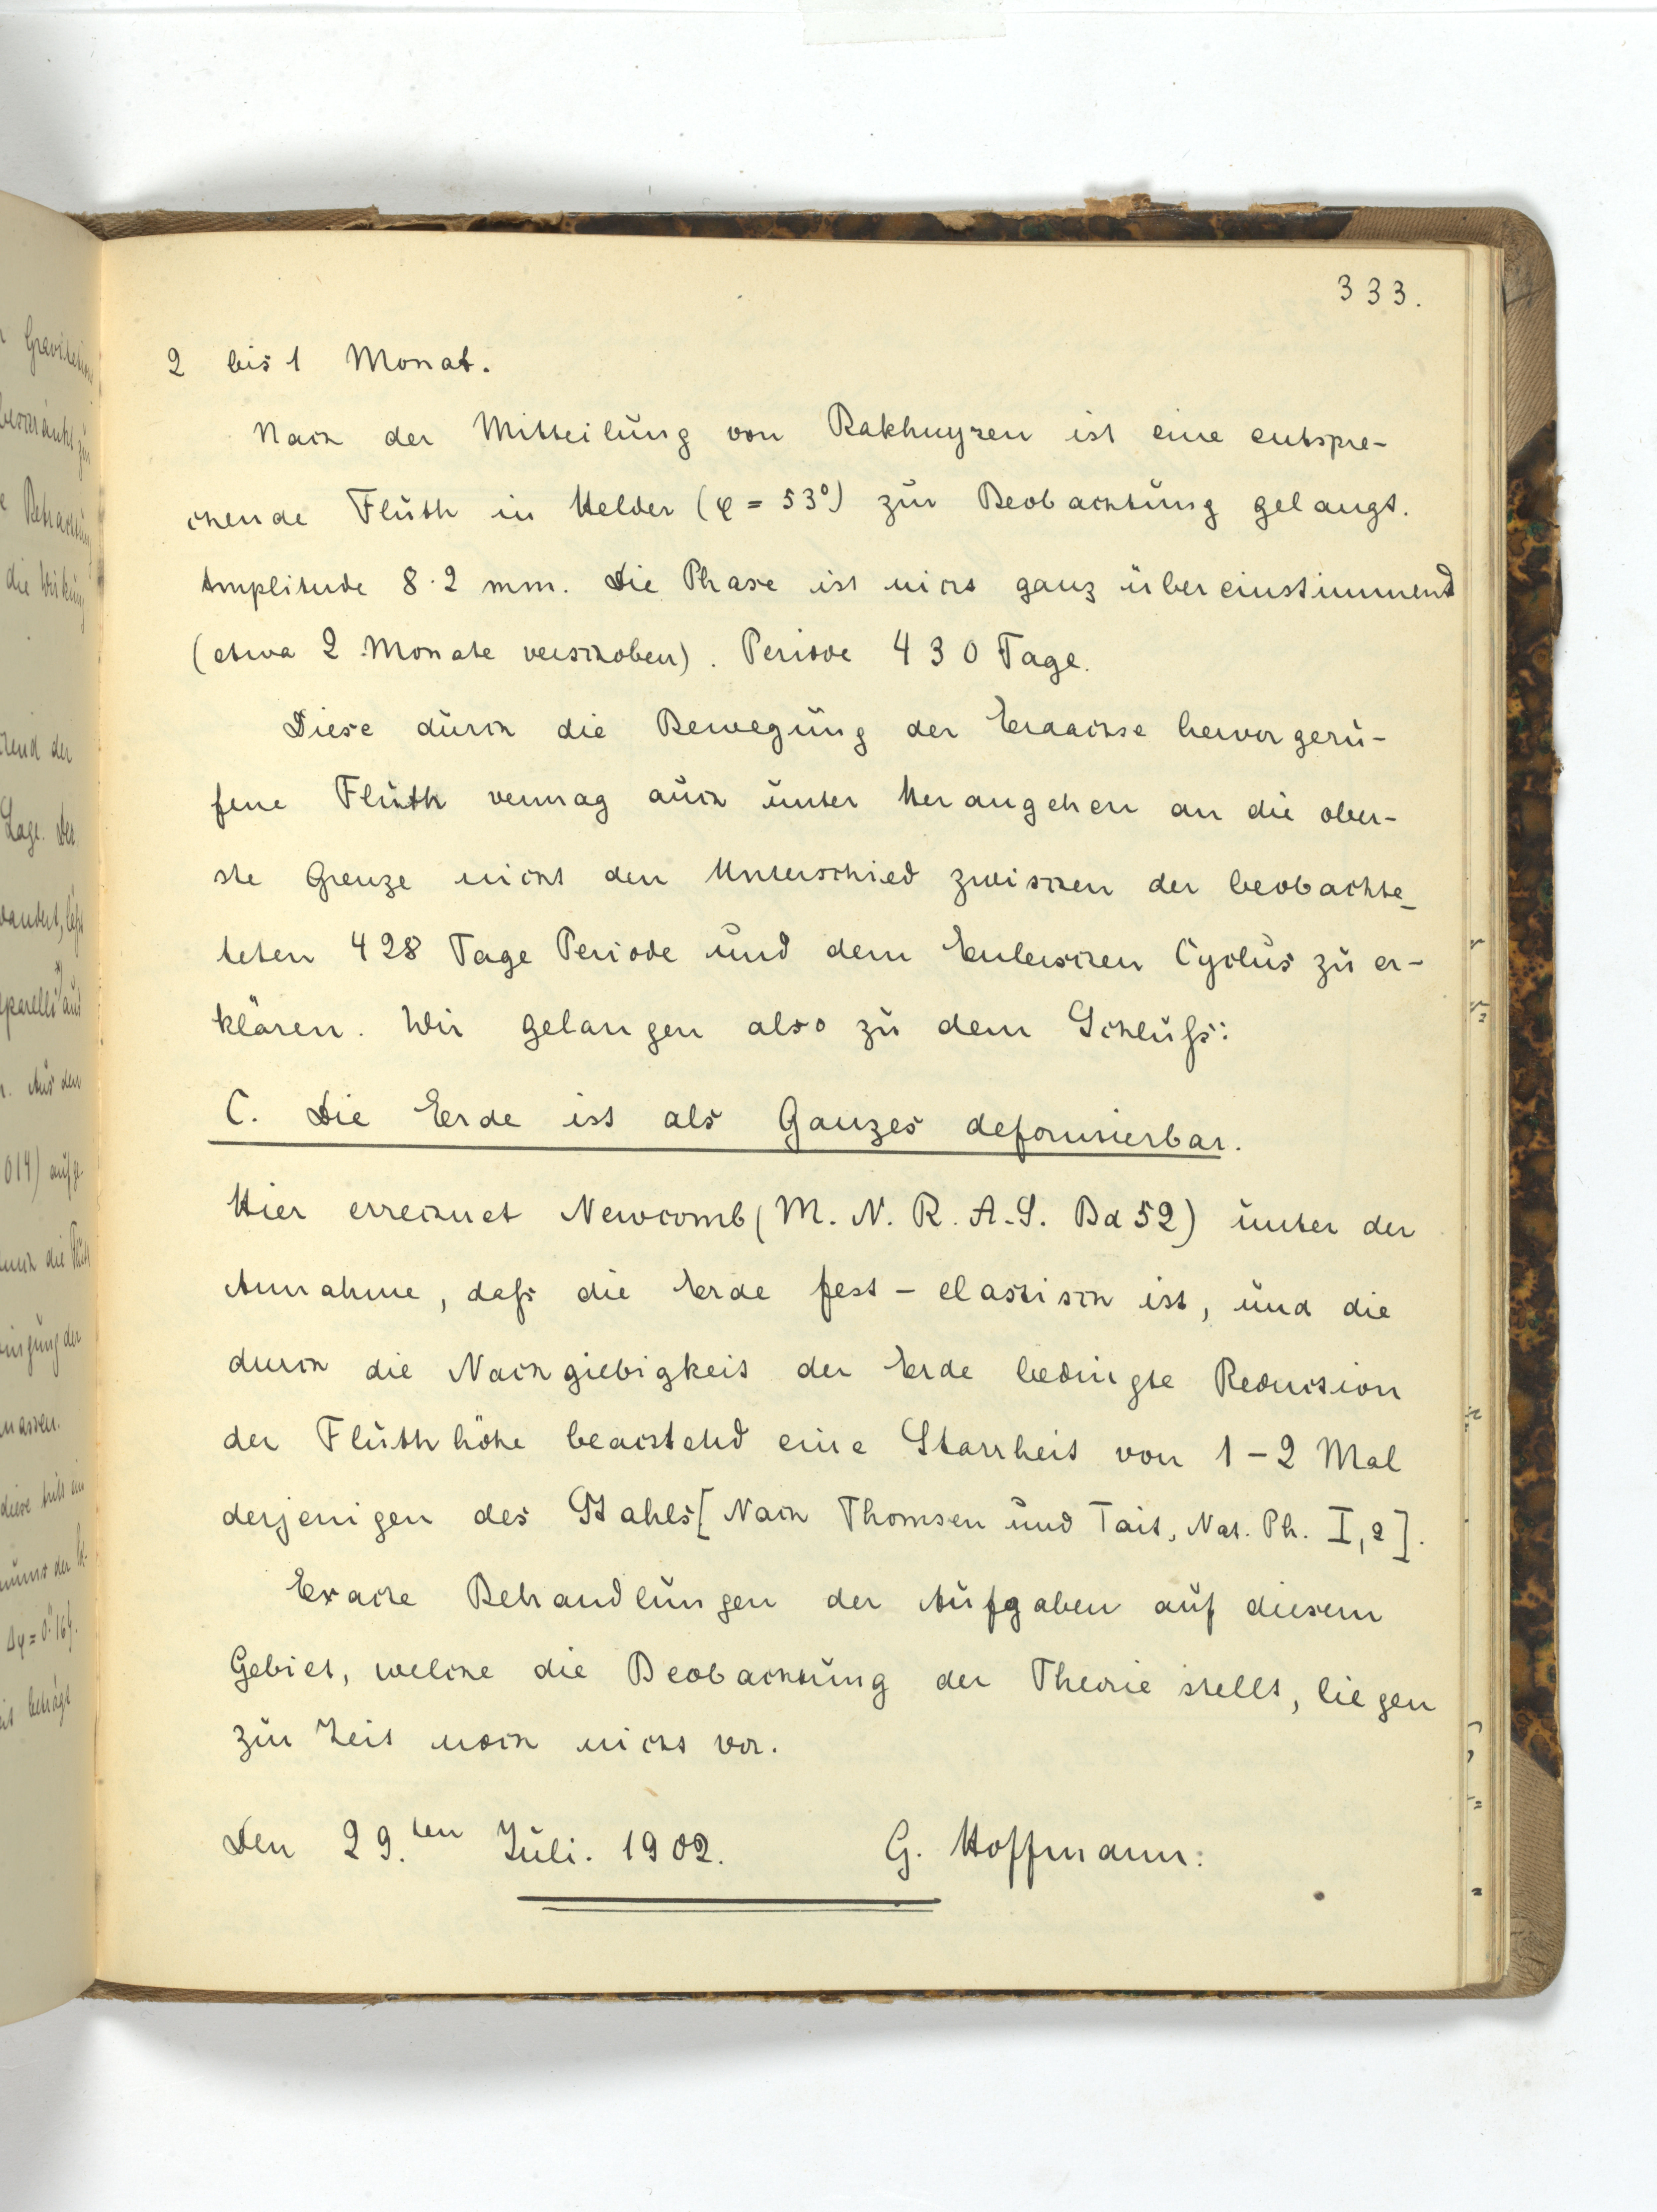 333.
2 bis 1 Monat.
Nach der Mitteilung von Bakhuyzen ist eine entspre-
chende Fluth in Helder (φ = 53°) zur Beobachtung gelangt.
Amplitude 8.2 mm. Die Phase ist nicht ganz übereinstimmend
(etwa 2 Monate verschoben). Periode 430 Tage.
Diese durch die Bewegung der Erdachse hervorgeru-
fene Fluth vermag auch unter Herangehen an die ober-
ste Grenze nicht den Unterschied zwischen der beobachte-
teten 428 Tage Periode und dem Eulerschen Cyclus zu er-
klären. Wir gelangen also zu dem Schluß:
C. Die Erde ist als Ganzes deformierbar.
Hier errechnet Newcomb (M. N. R. A. S. Bd 52) unter der
Annahme, daß die Erde fest - elastisch ist, und die
durch die Nachgiebigkeit der Erde bedingte Reduction
der Fluthhöhe beachtend eine Starrheit von 1 - 2 Mal
derjenigen des Stahls [Nach Thomsen und Tait, Nat. Ph. I, 2].
Exacte Behandlungen der Aufgaben auf diesem
Gebiet, welche die Beobachtung der Theorie stellt, liegen
zur Zeit noch nicht vor.
Den 29.ten Juli. 1902. G. Hoffmann.